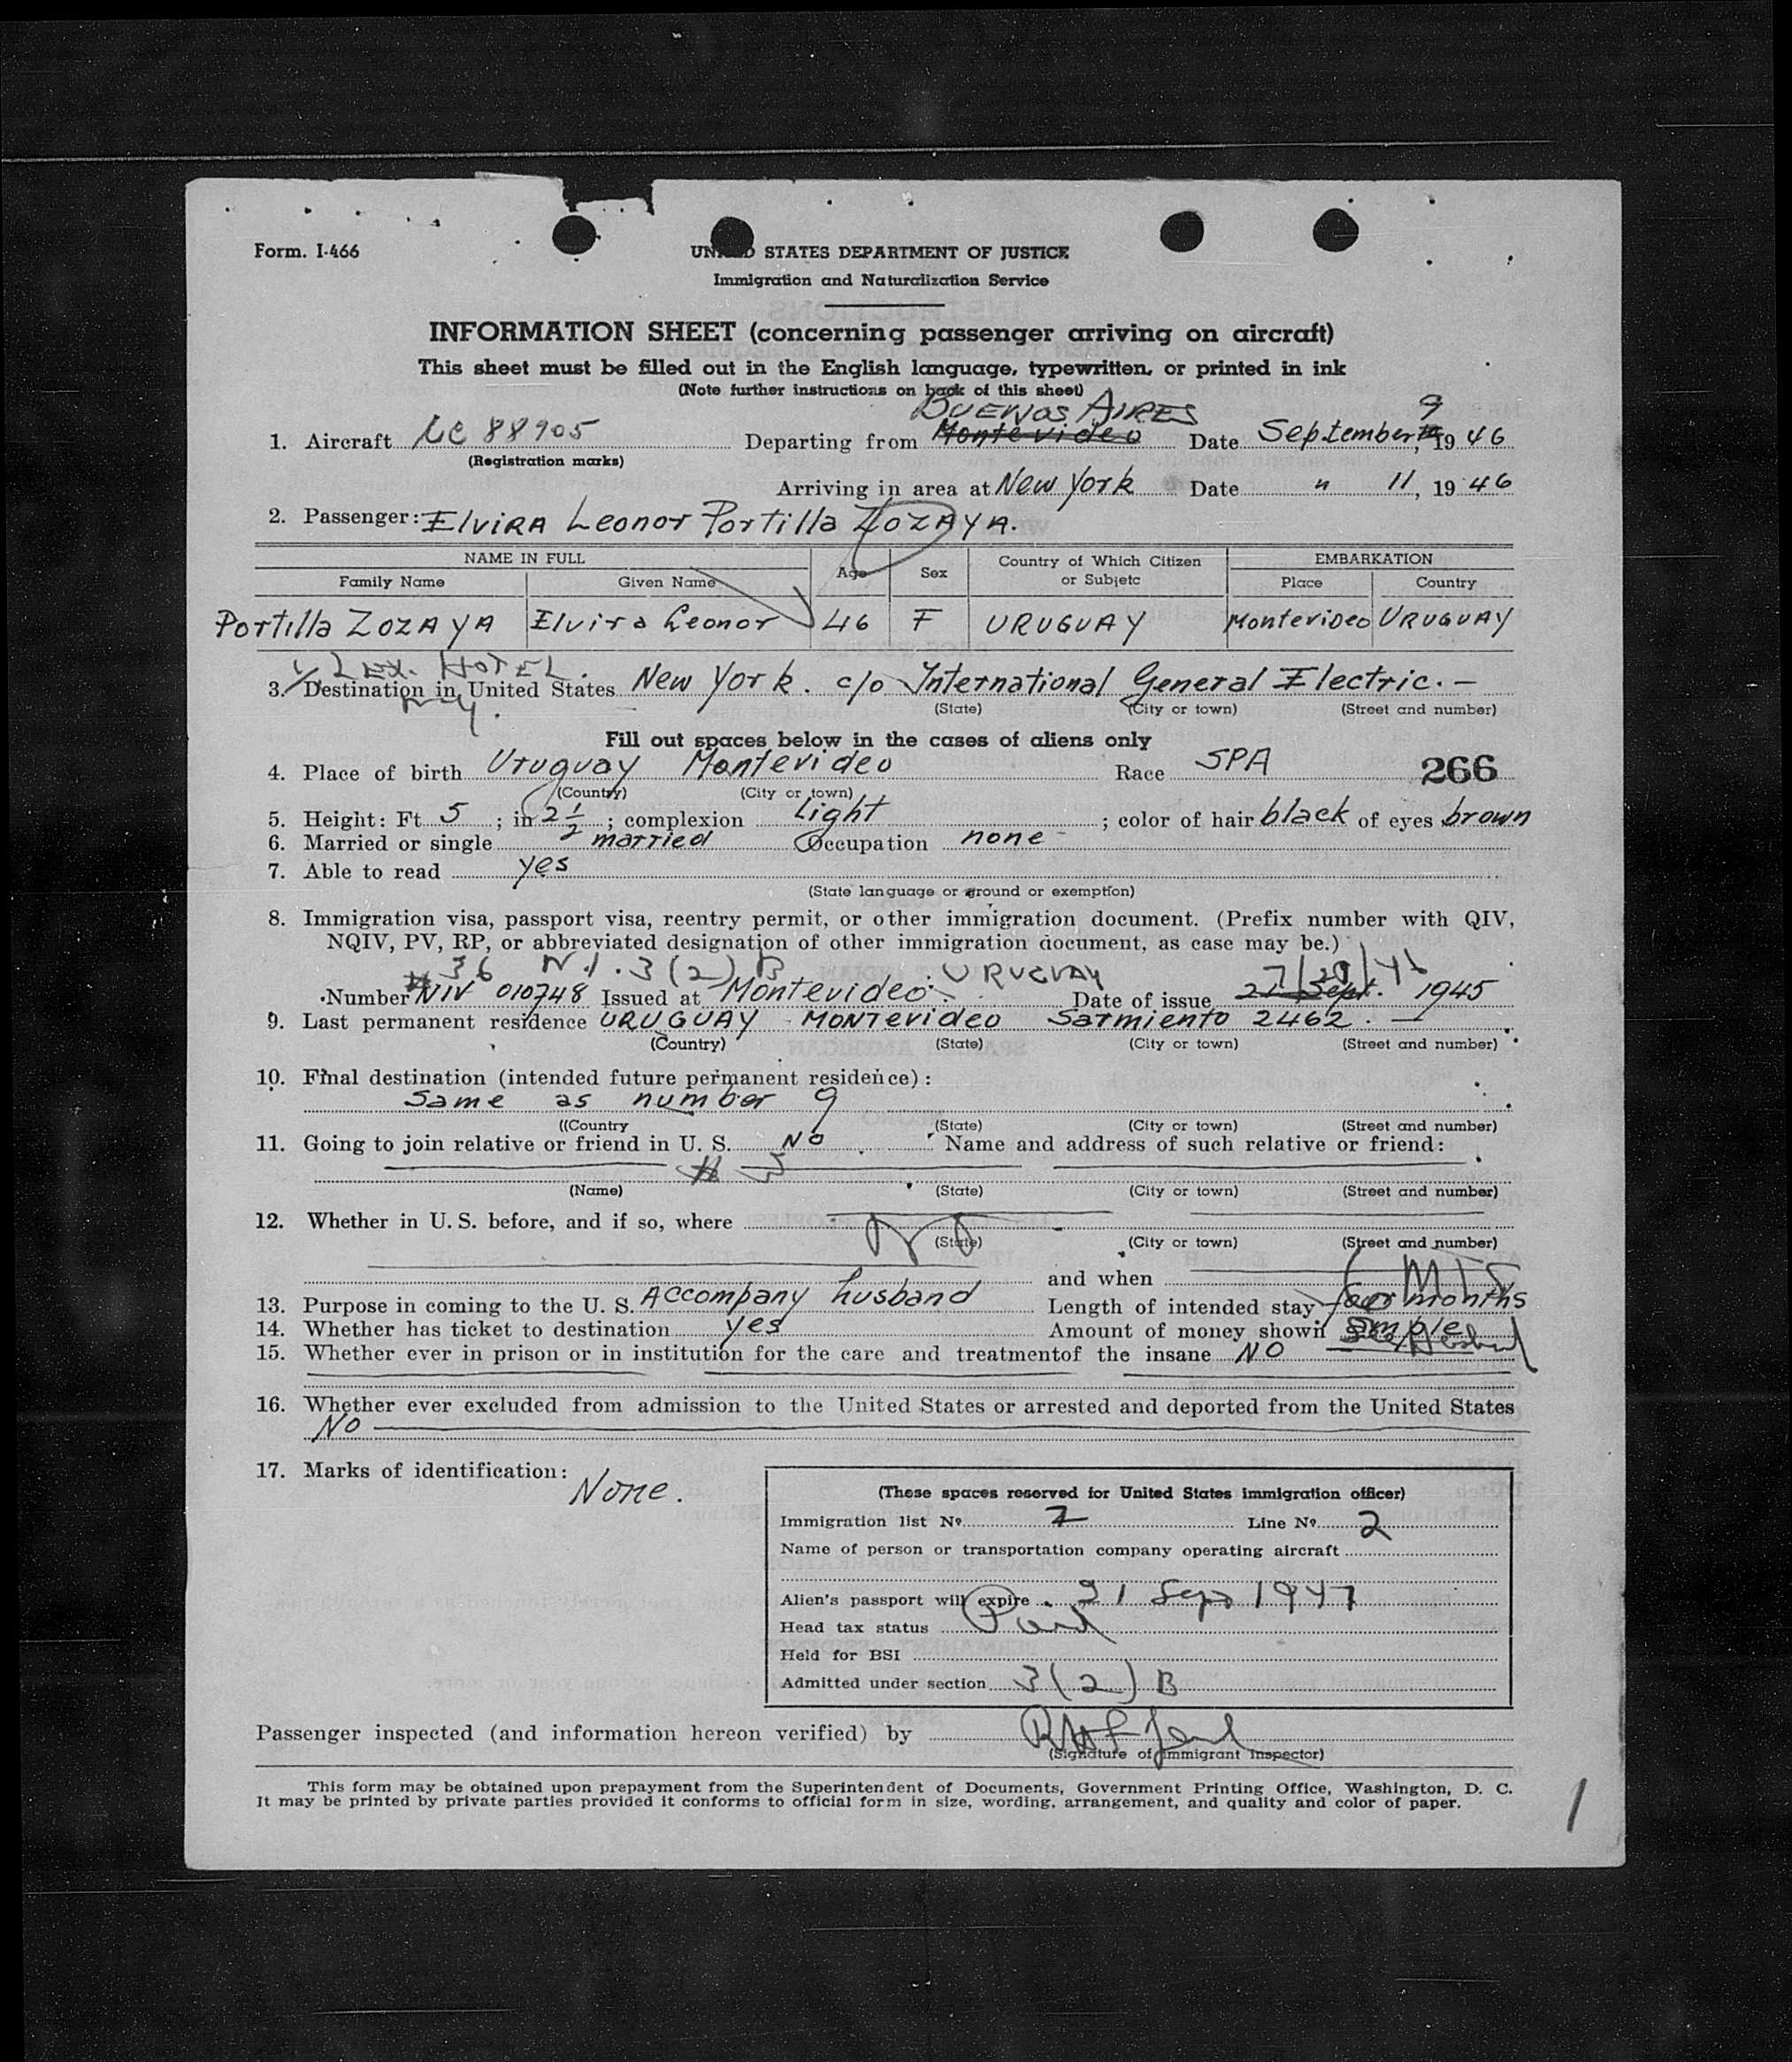 Form. I-466
UNITED STATES DEPARTMENT OF JUSTICE
Immigration and Naturalization Service
INFORMATION SHEET (concerning passenger arriving on aircraft)
This sheet must be filled out in the English language, typewritten, or printed in ink
(Note further instructions on back of this sheet)
BUENOS AIRES 9
1. Aircraft NC 88905 Departing from Montevideo Date September , 19 46
(Registration marks)
Arriving in area at New York Date " 11, 19 46
2. Passenger: ELVIRA Leonor Portilla ZOZAYA.
NAME IN FULL Age Sex Country of Which Citizen or Subjetc EMBARKATION
Family Name Given Name Place Country
Portilla ZOZAYA Elvira Leonor 46 F URUGUAY Montevideo URUGUAY
LEX. HOTEL.
3. Destination in United States New York. c/o International General Electric. —
N.Y.
(State) (City or town) (Street and number)
Fill out spaces below in the cases of aliens only
4. Place of birth Uruguay Montevideo Race SPA 266
(Country) (City or town)
5. Height: Ft 5 ; in 2 1/2 ; complexion Light ; color of hair black of eyes brown
6. Married or single married Occupation none -
7. Able to read yes
(State language or ground or exemption)
8. Immigration visa, passport visa, reentry permit, or other immigration document. (Prefix number with QIV,
NQIV, PV, RP, or abbreviated designation of other immigration document, as case may be.)
# 36 N.I. 3(2) B URUGUAY 7/29/46
Number NIV 010748 Issued at Montevideo. Date of issue 21 Sept. 1945
9. Last permanent residence URUGUAY - MONTEVIDEO Sarmiento 2462. —
(Country) (State) (City or town) (Street and number)
10. Final destination (intended future permanent residence):
Same as number 9
((Country (State) (City or town) (Street and number)
11. Going to join relative or friend in U. S. NO Name and address of such relative or friend:
(Name) (State) (City or town) (Street and number)
12. Whether in U. S. before, and if so, where NO
(State) (City or town) (Street and number)
and when
6 MTS
13. Purpose in coming to the U. S. Accompany husband Length of intended stay four months
14. Whether has ticket to destination yes Amount of money shown ample
Husband
15. Whether ever in prison or in institution for the care and treatmentof the insane NO
16. Whether ever excluded from admission to the United States or arrested and deported from the United States
NO
17. Marks of identification: None.
(These spaces reserved for United States immigration officer)
Immigration list Nº 2 Line Nº 2
Name of person or transportation company operating aircraft
Alien's passport will expire 21 Sep 1947
Head tax status Paid
Held for BSI
Admitted under section 3(2) B
Passenger inspected (and information hereon verified) by
(Signature of immigrant inspector)
This form may be obtained upon prepayment from the Superintendent of Documents, Government Printing Office, Washington, D. C.
It may be printed by private parties provided it conforms to official form in size, wording, arrangement, and quality and color of paper.
1